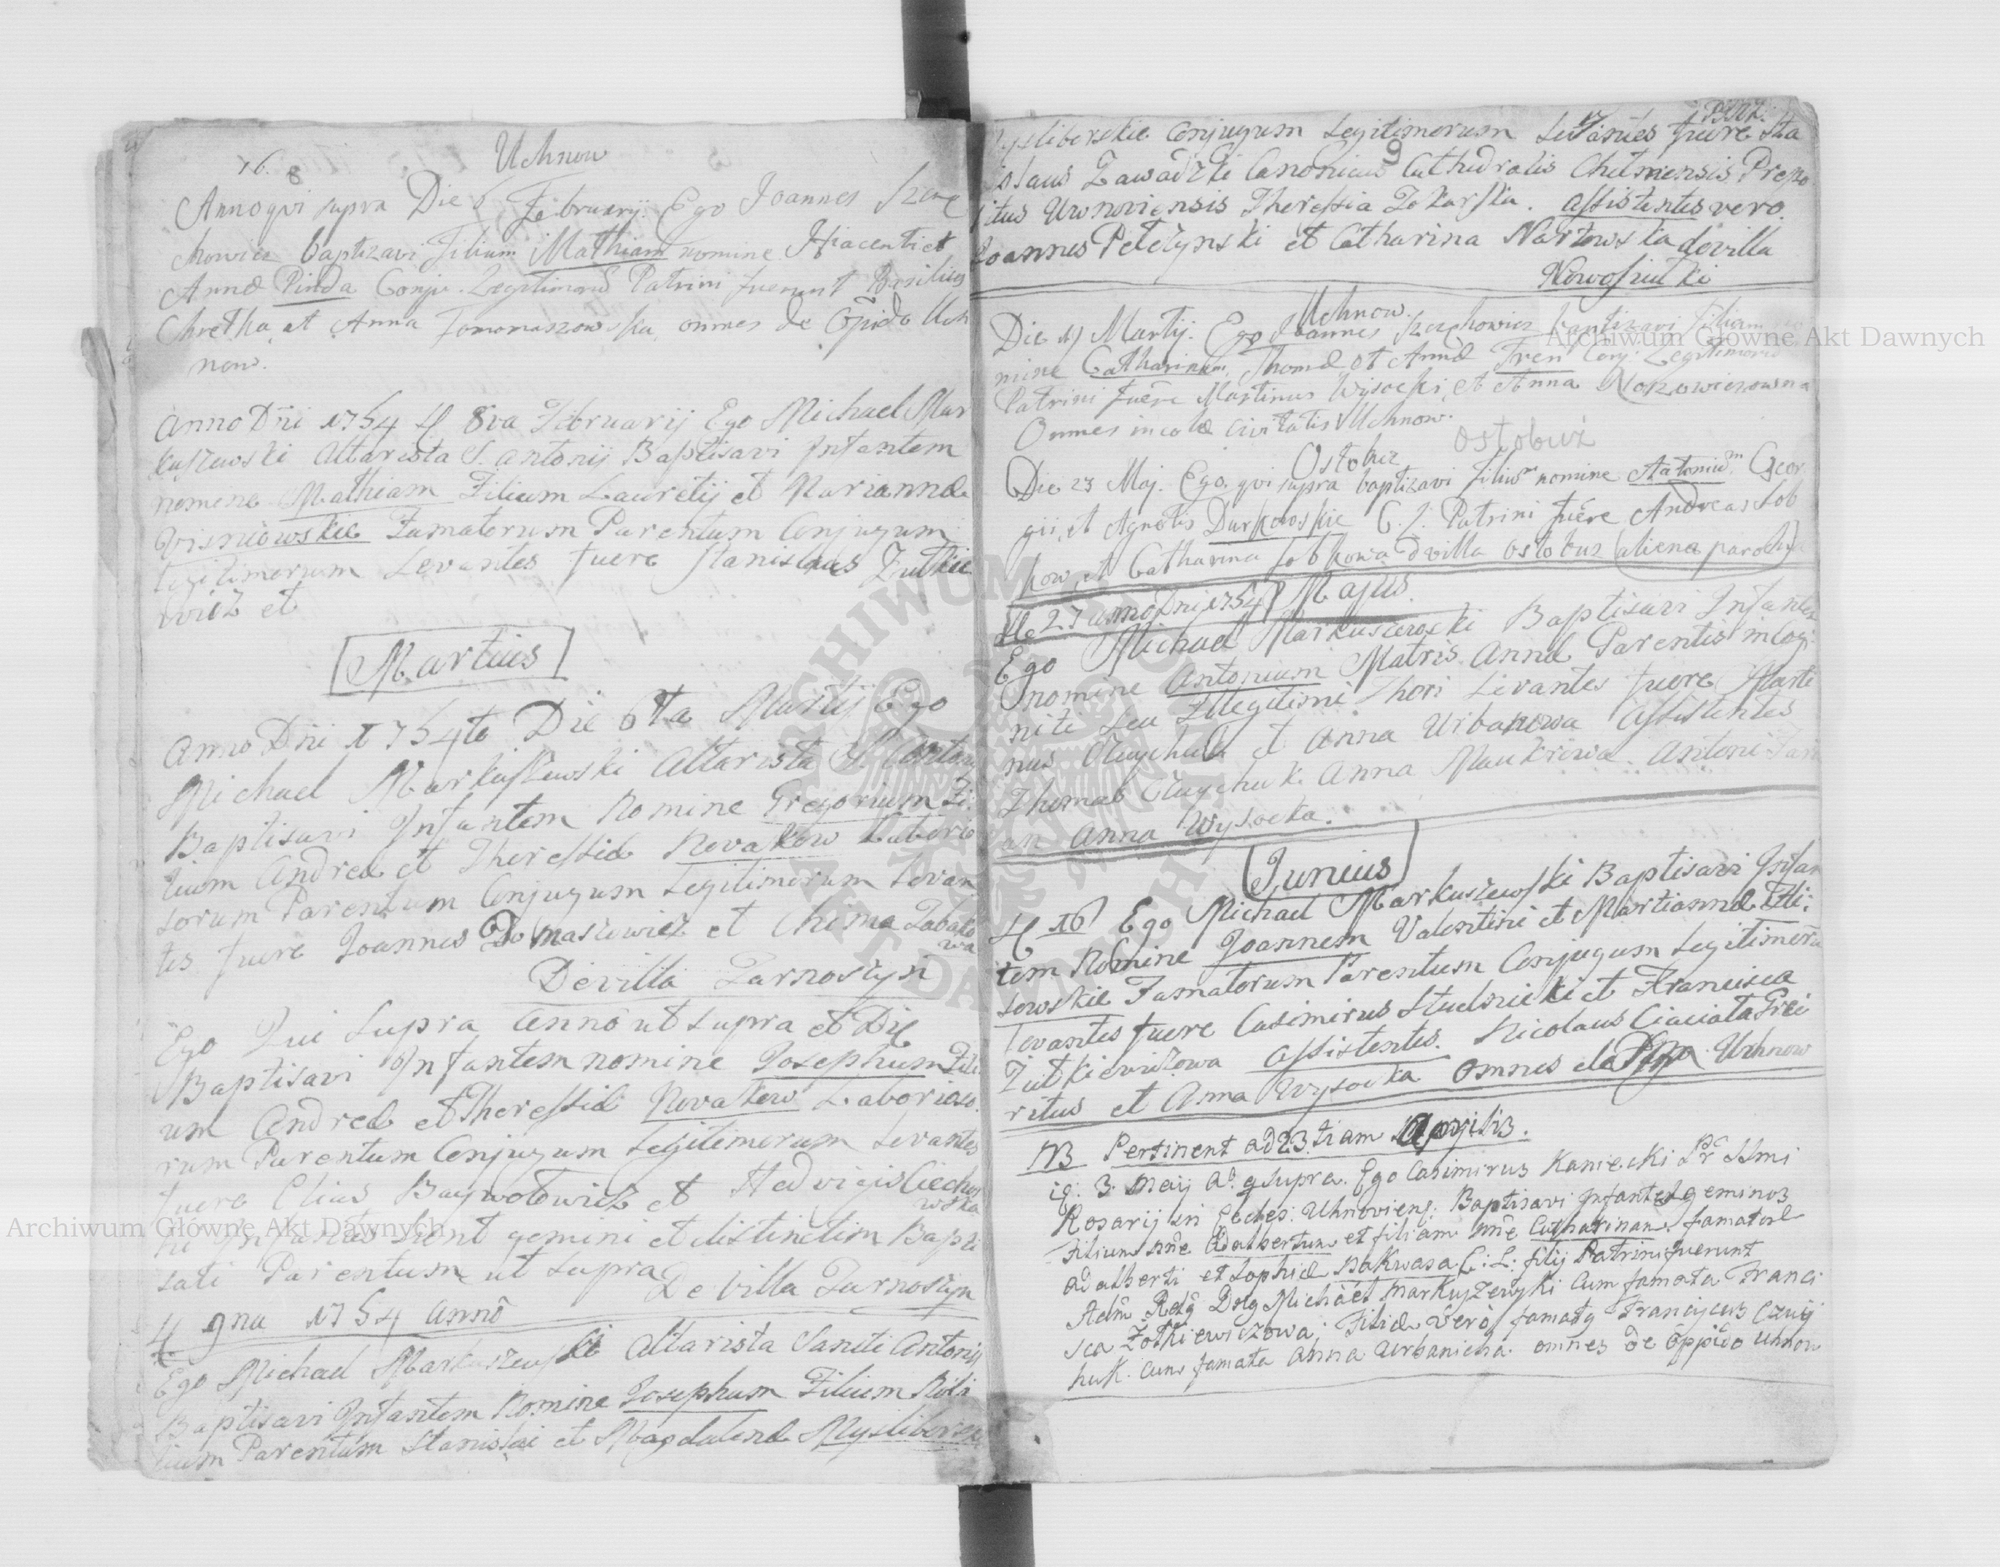 16.
8
Uchnow
Anno qvi supra Die 6 Februarij Ego Joannes Szcze
chowicz baptizavi Filium Mathiam nomine Hiacenti et
Annæ Pinda Conju. Legitimorū Patrini fuerunt Basilius
Chretka et Anna Tomaszowska omnes de Opido Uch
now.
Anno Dñi 1754 d 8va Februarij Ego Michael Mar
kuszewski Altarista S. Antonij Baptisavi Infantem
nomine Mathiam Filium Laurentij et Mariannæ
Wisniowskie Famatorum Parentum Conjugum
legitimorum Levantes fuere Stanislaus Zulkie
wicz et
Martius
Anno Dñi 1754to Die 6ta Martij Ego
Michael Markuszewski Altarista S. Antonij
Baptisavi Infantem Nomine Gregorium Fi
lium Andreæ et Theressiæ Novakow Laborio
sorum Parentum Conjugum Legitimorum Levan
tes fuere Joannes Tomaszewicz et Chema Zabako
wa
De villa Tarnoszyn
Ego Qui Supra Anno ut supra et Die
Baptisavi Infantem nomine Josephum Fili
um Andreæ et Theressiæ Novakow Laborioso
rum Parentum Conjugum Legitimorum Levantes
fuere Elias Baywolowicz et Hedvigis Ciechow
wska
hi Infantes sunt gemini et distinctim Bapti
sati Parentum ut supra De Villa Tarnoszyn
d 9na 1754 anno
Ego Michael Markuszewski Altarista Sancti Antonij
Baptisavi Infantem Nomine Josephum Filium Nobi
lium Parentum Stanislai et Magdalenæ Mysliborskie
9
Mysliborskie Conjugum Legitimorum Levantes fuere Sta
nislaus Zawadzki Canonicus Cathedralis Chelmensis Prepo
situs Uhnoviensis Theressia Tokarska. Assistentes vero
Joannes Petczynski et Catharina Nartowska de villa
Nowosiulki
Uchnow.
Die 17 Martij. Ego Joannes Szczechowicz baptizavi Filiam no
mine Catharinam, Thomæ et Annæ Tren Conj: Legitimorū
Patrini fuēre Martinus Wysocki, et Anna Nozowiczowna
Omnes incolæ civitatis Uchnow.
Ostobuz
Ostobuż
Die 23 Maj. Ego, qvi supra baptizavi filiūm nomine Antoniūm Geor
gii, et Agnetis Durkowskie C. L. Patrini fuēre Andreas Sob
kow, et Catharina Sobkowa d villa Ostobuz (aliena parochia)
de 27 Anno Dni 1754 Majus.
Ego Michael Markuszewski Baptisavi Infantem
nomine Antonium Matris Annæ Parentis incogi
niti seu Illegitimi Thori Levantes fuere Marti
nus et Anna Urbanowa Assistentes
Thomas Anna Antoni
an Anna Wysocka.
Junius
d 16 Ego Michael Markuszewski Baptisavi Infan
tem Nomine Joannem Valentini et Martiannæ
sowskie Famatorum Parentum Conjugum Legitimoru
levantes fuere Casimirus Studnicki et Francisca
Zutkiewiczowa Assistentes. Nicolaus
ritus et Anna Wysocka omnes de Uchnow
NB Pertinent ad 23 tiam Aprilis.
ig: 3 Maij Aº. q supra. Ego Casimirus Kaniecki Pr SSmi
Rosarij in Eccles: Uhnovieng: Baptisavi Infantes geminos
Filium nñe Adalbertum et filiam nñe Catharinam, famatorū
Adalberti et Sophiæ Bakwasa C: L: filij Patrini fuerunt
Adm̄ Rdg Dng Michael Markuszewski cum famata Franci
sca Żołkiewiczowa; Filiæ vero famatg Franciscus Czuij
huk. cum famata Anna Urbanicha omnes de oppido Uhnow
Archiwum Główne Akt Dawnych
Archiwum Główne Akt Dawnych
ARCHIWUM GŁÓWNE AKT DAWNYCH